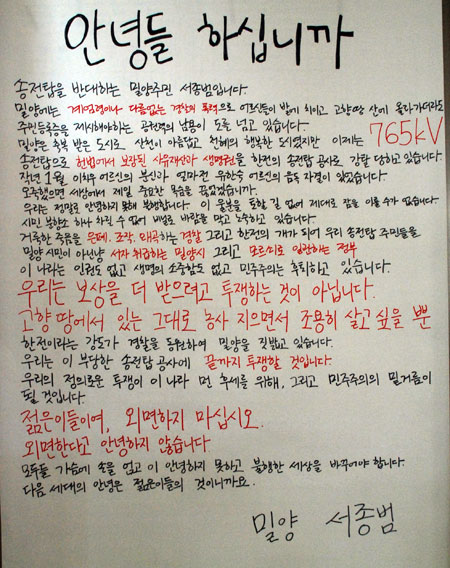 안녕들 하십니까
송전탑을 반대하는 밀양주민 서종범입니다.
밀양에는 계엄령이나 다름없는 경찰의 폭력으로 어르신들이 발에 치이고 고향땅 산에 올라가더라도
주민등록증을 제시해야하는 공권력의 남용이 도를 넘고 있습니다.
밀양은 축복 받은 도시로, 산천이 아름답고 천혜의 행복한 도시였지만 이제는 765kV
송전탑으로 헌법에서 보장된 사유재산과 생명권을 한전의 송전탑 공사로 강탈 당하고 있습니다.
작년 1월 이치우 어르신의 분신과 얼마전 유한숙 어르신의 음독 자결이 있었습니다.
오죽했으면 세상에서 제일 소중한 목숨을 끊었겠습니까.
우리는 정말로 안녕하지 못해 불행합니다. 이 울분을 토할 길 없어 제대로 잠을 이룰 수가 없습니다.
시민 분향소 하나 차릴 수 없어 비닐로 바람을 막고 노숙하고 있습니다.
거룩한 죽음을 은폐. 조작. 왜곡하는 경찰 그리고 한전의 개가 되어 우리 송전탑 주민들을
밀양 시민이 아닌냥 서자 취급하는 밀양시 그리고 모르쇠로 일관하는 정부
이 나라는 인권도 없고 생명의 소중함도 없고 민주주의는 후퇴하고 있습니다.
우리는 보상을 더 받으려고 투쟁하는 것이 아닙니다.
고향 땅에서 있는 그대로 농사 지으면서 조용히 살고 싶을 뿐
한전이라는 강도가 경찰을 동원하여 밀양을 짓밟고 있습니다.
우리는 이 부당한 송전탑 공사에 끝까지 투쟁할 것입니다.
우리의 정의로운 투쟁이 이 나라 먼 후세를 위해, 그리고 민주주의의 밑거름이
될 것입니다
젊은이들이여, 외면하지 마십시오.
외면한다고 안녕하지 않습니다
모두들 가슴에 손을 얹고 이 안녕하지 못하고 불행한 세상을 바꾸어야 합니다.
다음 세대의 안녕은 젊은이들의 것이니까요.
밀양 서종범